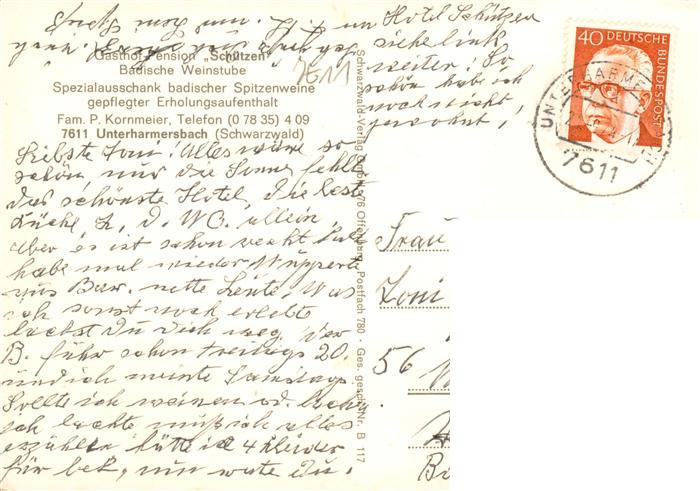 Gasthof-Pension „Schützen"
Badische Weinstube
Spezialausschank badischer Spitzenweine
gepflegter Erholungsaufenthalt
Fam. P. Kornmeier, Telefon (0 78 35) 4 09
7611 Unterharmersbach (Schwarzwald)
7611
Liebste Toni! Alles wäre so
schön nur die Sonne fehlt
das schönste Hotel, die beste
Küche, Z, D. WC. allein,
aber es ist schon recht
habe mal wieder Wupperta
aus Barm. nette Leute, Was
ich sonst noch erlebte
lachst Du Dich weg. der
B. fuhr schon Freitags 20.
und ich meinte Samstags.
Sollte ich weinen od. lachen
ich lachte muß ich alles
erzählen hätte ich 4 Kleider
für bek, nun warte Du.
Hotel Schützen
siehe link
weiter! So
schön habe ich
noch nicht
gewohnt!
Schwarzwald-Verlag GmbH 76 Offenburg, Postfach 780 · Ges. gesch. Nr. B 117
40 DEUTSCHE
BUNDESPOST
UNTERHARMERSBACH
7611
Frau
Toni
56